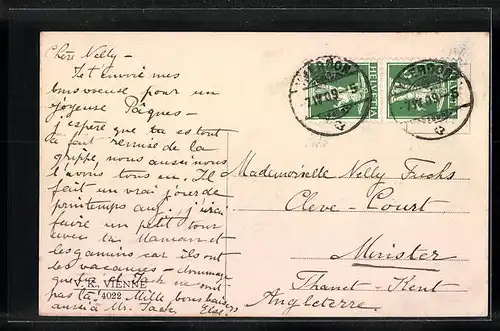 Chère Nelly –
Je t'envoie mes
bons voeux pour un
joyeuse Pâques –
j'espère que tu es tout
à fait remise de la
grippe, nous aussi nous
l'avons tous eu. Il
fait un vrai jour de
printemps auj. j'irai
faire un petit tour
avec ta Maman et
les gamins car ils ont
les vacances – dommage
que toi et Jack ne sont
pas là! Mille bons baisers
aussi à Mr. Jack. Else.
V. K. VIENNE
4022
YVERDON
7.IV.09. 5
HELVETIA
YVERDON
7.IV.09. 5
HELVETIA
Mademoiselle Nelly Fuchs
Cleve-Court
Minister
Thanet-Kent
Angleterre.